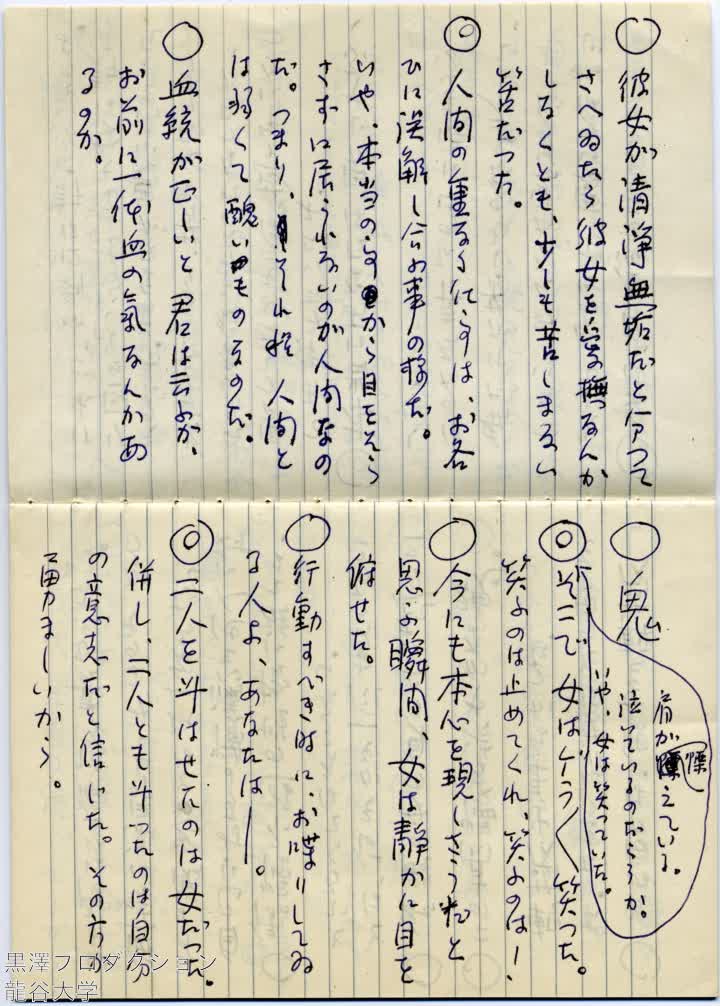 ○ 彼女が清浄無垢だと分つて
さへゐたら彼女を愛撫なんか
しなくとも、少しも苦しまない
筈だつた。
◎ 人間の重なる仕事は、お各
ひに誤解し合ふ事の様だ。
いや、本当の事から目をそら
さずに居られないのが人間なの
だ。つまり、それ程人間と
は弱くて醜いものなのだ。
○ 血統が正しいと君は云ふか、
お前に一体血の氣なんかあ
るのか。
○ 鬼
肩が慄えている。
泣いているのだらうか。
いや、女は笑っていた。
◎ そこで女はゲラ〱笑つた。
笑ふのは止めてくれ、笑ふのは──、
○ 今にも本心を現しさうだと
思ふ瞬間、女は静かに目を
俯せた。
○ 行動すべき時に、お喋りしてゐ
る人よ、あなたは──。
◎ 二人を斗はせたのは女だつた。
併し、二人とも斗つたのは自分
の意志だと信じた。その方が
勇ましいから。
黒澤プロダクション
龍谷大学